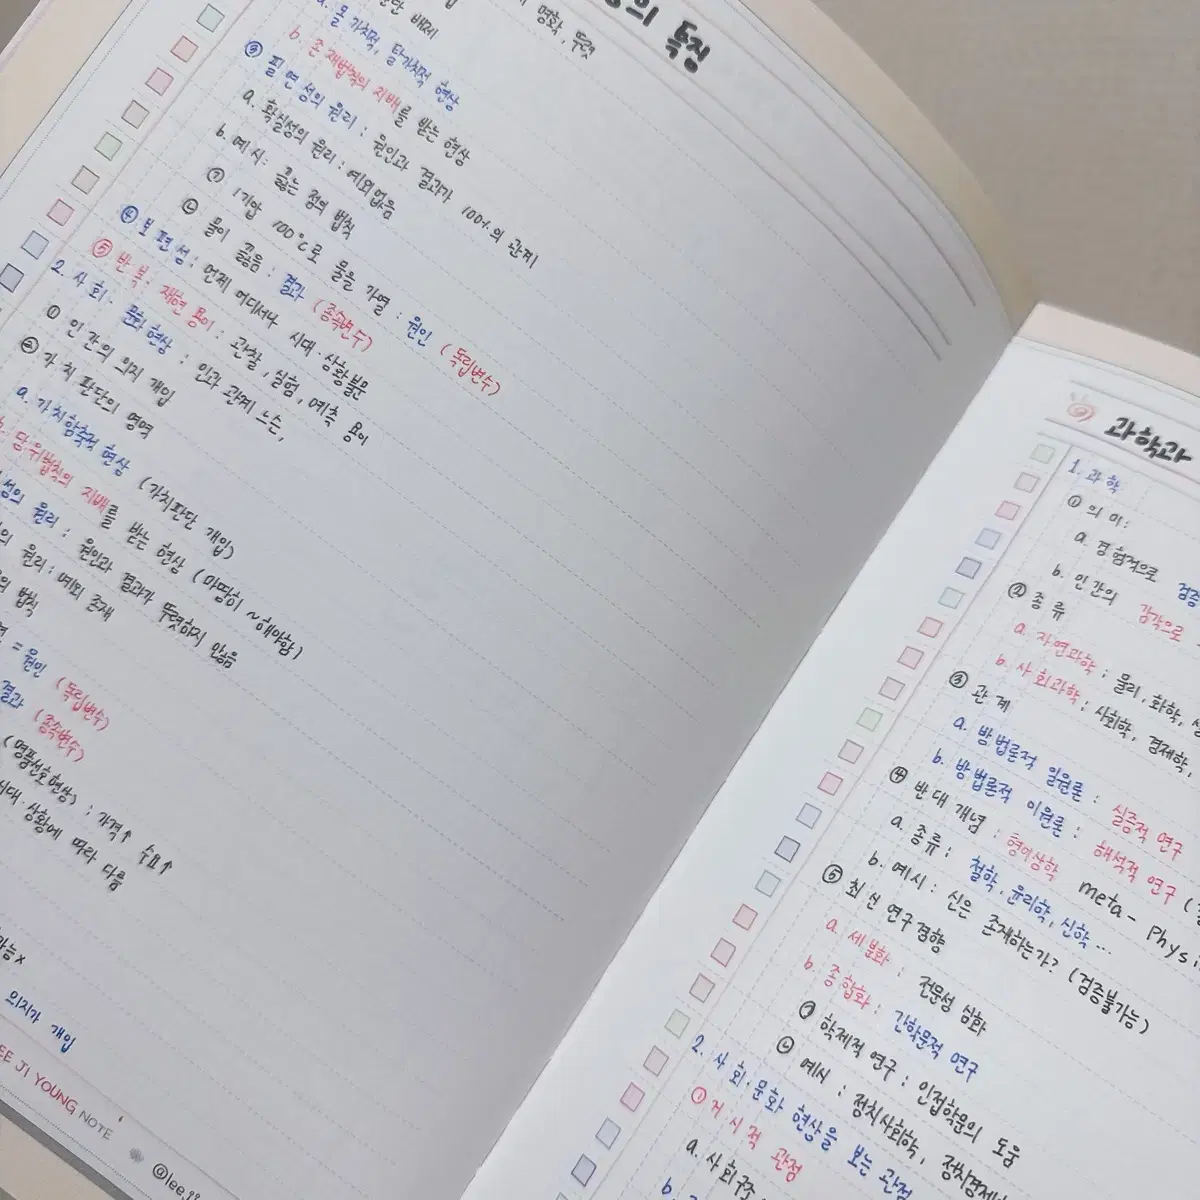 의 특징
명확, 뚜렷
판단 배제
a. 몰가치적, 탈가치적 현상
b. 존재법칙의 지배를 받는 현상
③ 필연성의 원리 : 원인과 결과가 100%의 관계
a. 확실성의 원리 : 예외없음
b. 예시: 끓는 점의 법칙
㉠ 1기압 100℃로 물을 가열 : 원인 (독립변수)
㉡ 물이 끓음 : 결과 (종속변수)
④ 보편성 : 언제 어디서나 시대·상황불문
⑤ 반복·재현 용이 : 관찰, 실험, 예측 용이
2. 사회·문화현상 : 인과 관계 느슨,
① 인간의 의지 개입
② 가치 판단의 영역
a. 가치함축적 현상 (가치판단 개입)
b. 당위법칙의 지배를 받는 현상 (마땅히 ~해야함)
성의 원리 : 원인과 결과가 뚜렷하지 않음
의 원리 : 예외 존재
의 법칙
= 원인 (독립변수)
결과 (종속변수)
(명품선호현상) ; 가격↑ 수요↑
시대·상황에 따라 다름
가능x
의지가 개입
LEE JI YOUNG NOTE
@lee.ji
과학과
1. 과학
① 의미:
a. 경험적으로 검증
b. 인간의 감각으로
② 종류
a. 자연과학 : 물리, 화학, 생
b. 사회과학 : 사회학, 경제학,
③ 관계
a. 방법론적 일원론 : 실증적 연구
b. 방법론적 이원론 : 해석적 연구 (
④ 반대 개념 : 형이상학 meta - Physi
a. 종류 : 철학, 윤리학, 신학 ...
b. 예시 : 신은 존재하는가? (검증불가능)
⑤ 최신 연구경향
a. 세분화 : 전문성 심화
b. 종합화 : 간학문적 연구
㉠ 학제적 연구 : 인접학문의 도움
㉡ 예시 : 정치사회학, 정치경제
2. 사회·문화 현상을 보는 관점
① 거시적 관점
a. 사회구조
b.